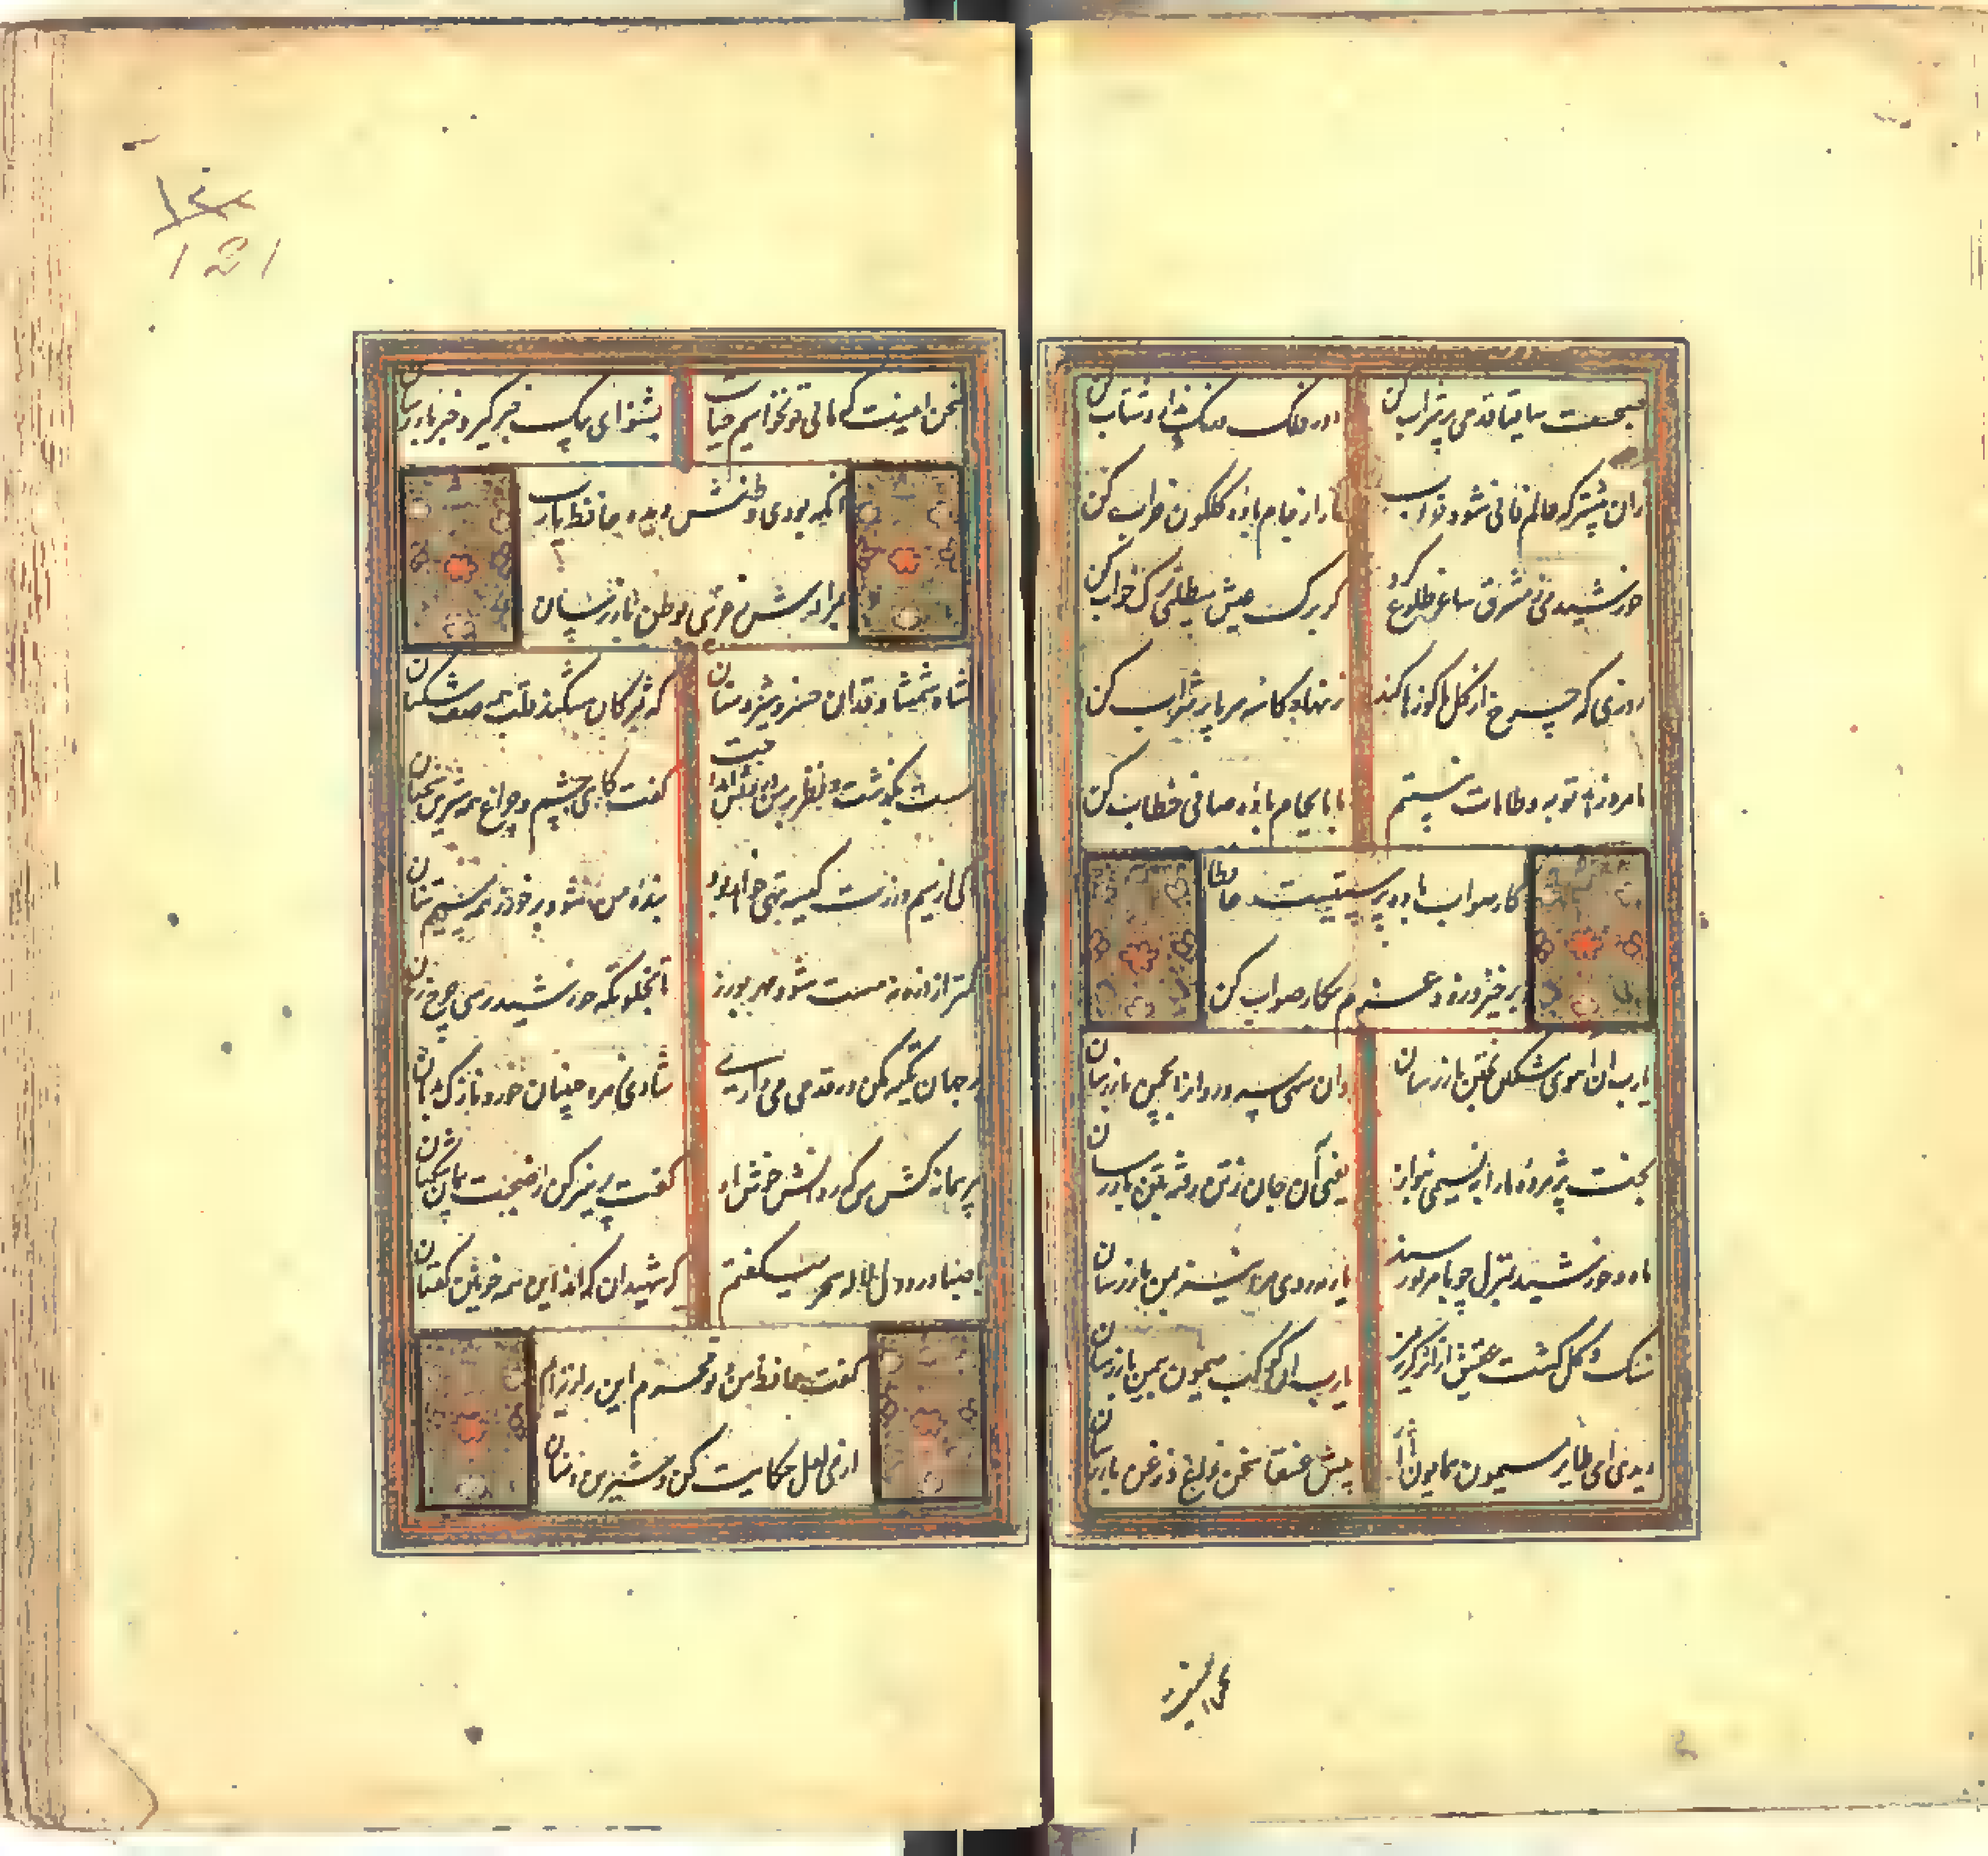 صبحست ساقیا قدحی پر شراب کن
دور فلک درنگ ندارد شتاب کن
زان پیشتر که عالم فانی شود خراب
ما را ز جام باده گلگون خراب کن
خورشید می ز مشرق ساغر طلوع کرد
گر برگ عیش میطلبی ترک خواب کن
روزی که چرخ از گل ما کوزها کند
زنهار کاسه سر ما پر شراب کن
ما مرد زهد و توبه و طامات نیستیم
با ما بجام باده صافی خطاب کن
کار صواب باده پرستیست حافظا
برخیز و روی عزم بکار صواب کن
یا رب آن آهوی مشکین بختن باز رسان
وان سهی سرو روان را بچمن باز رسان
بخت پژمرده ما را بنسیمی بنواز
یعنی آن جان ز تن رفته بتن باز رسان
ماه و خورشید بمنزل چو بامر تو رسند
یار مهروی مرا نیز بمن باز رسان
سنگ و گل گشت عقیق از اثر گریه
یا رب آن کوکب میمون بیمن باز رسان
بروای طایر میمون همایون آثار
پیش عنقا سخن زاغ و زغن باز رسان
سخن اینست
121
سخن اینست که ما بی تو نخواهیم حیات
بشنو ای پیک خبر گیر و خبر باز رسان
آنکه بودی وطنش دیده حافظ یا رب
بمرادش ز غریبی بوطن باز رسان
شاه شمشاد قدان خسرو شیرین دهنان
که بمژگان شکند قلب همه صف شکنان
مست بگذشت و نظر بر من درویش انداخت
گفت کای چشم و چراغ همه شیرین سخنان
تا کی از سیم و زرت کیسه تهی خواهد بود
بنده من شو و برخور ز همه سیم تنان
کمتر از ذره نه پست مشو مهر بورز
تا بخلوتگه خورشید رسی چرخ زنان
بر جهان تکیه مکن ور قدحی می داری
شادی زهره جبینان خور و نازک بدنان
پیر پیمانه کش من که روانش خوش باد
گفت پرهیز کن از صحبت پیمان شکنان
با صبا در چمن لاله سحر میگفتم
که شهیدان که اند این همه خونین کفنان
گفت حافظ من و تو محرم این راز نه ایم
از می لعل حکایت کن و شیرین دهنان